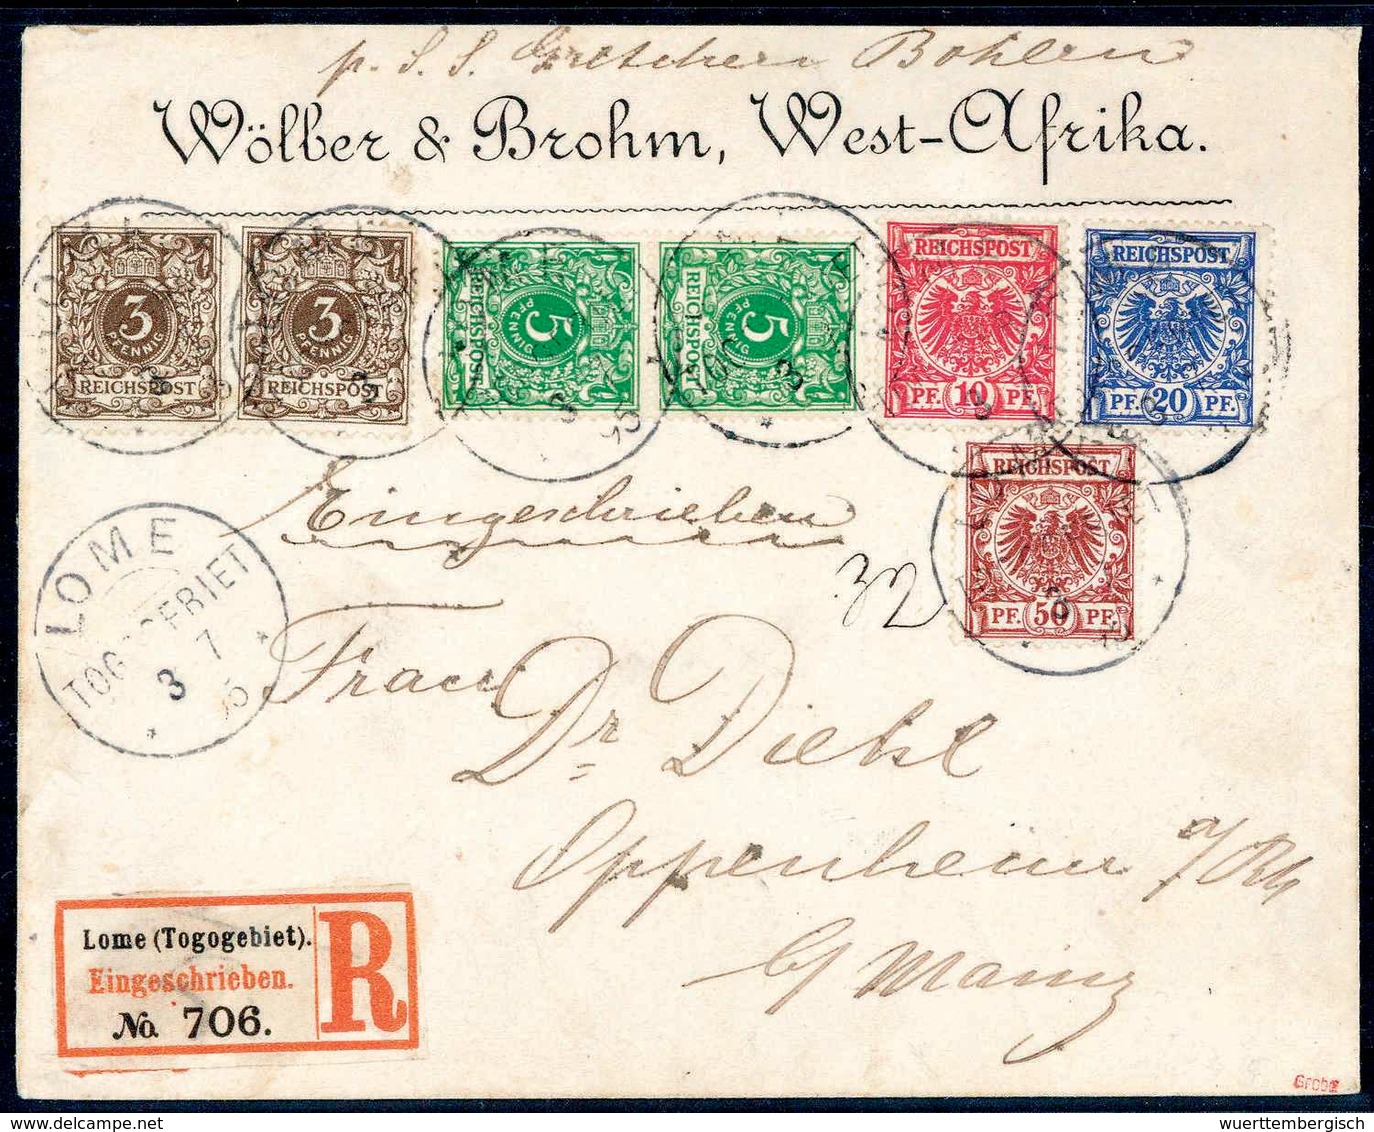 p. S. S. Gretchen Bohlen
Wölber & Brohm, West-Afrika.
3
PFENNIG
REICHSPOST
3
PFENNIG
REICHSPOST
5
PFENNIG
REICHSPOST
5
PFENNIG
REICHSPOST
REICHSPOST
PF. 10 PF.
REICHSPOST
PF. 20 PF.
REICHSPOST
PF. 50 PF.
Eingeschrieben
LOME
TOGOGEBIET
3 7
95
Frau
Dr Diehl
Oppenheim a/Rh
b/ Mainz
Lome (Togogebiet).
Eingeschrieben.
No. 706.
R
Grobe
wuerttembergisch